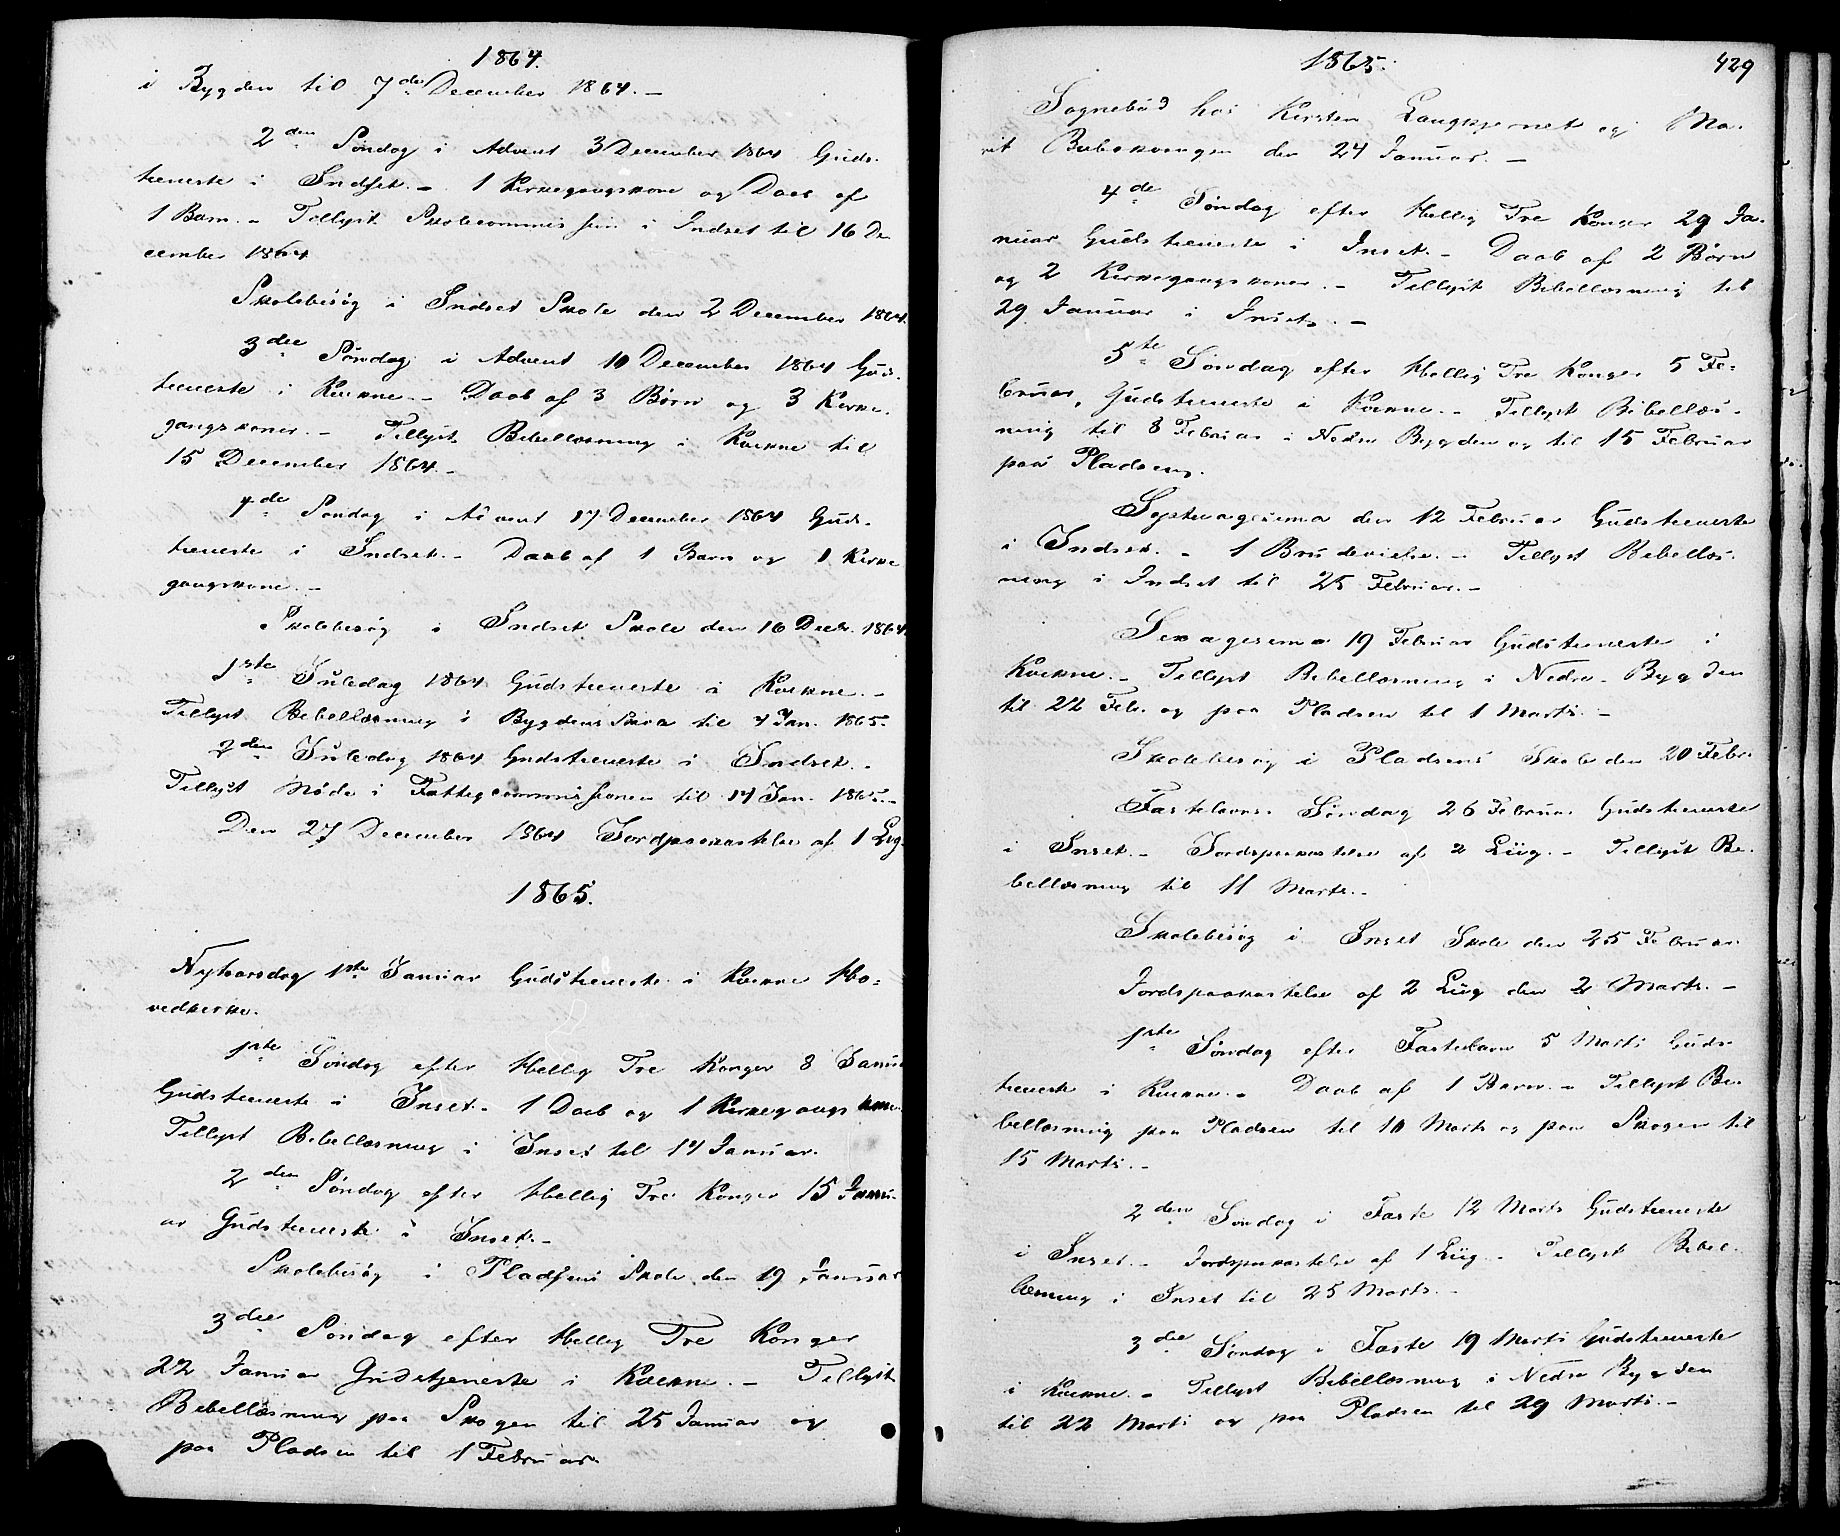 1864.
i Bygden til 7de December 1864. –
2den Søndag i Advent 3 December 1864 Guds-
tieneste i Indset. – 1 Kirkegangskone og Daab af
1 Barn. – Tillyst Skolecommission i Indset til 16 De
cember 1864
Skolebesøg i Indset Skole den 2 December 1864.
3die Søndag i Advent 10 December 1864 Guds-
tieneste i Kvikne. – Daab af 3 Børn og 3 Kirke-
gangskoner. – Tillyst Bibellæsning i Kvikne til
15 December 1864. –
4de Søndag i Advent 17 December 1864 Guds-
tieneste i Indset. – Daab af 1 Barn og 1 Kirke
gangskone. –
Skolebesøg i Indset Skole den 16 Decbr. 1864.
1ste Juledag 1864 Gudstieneste i Kvikne. –
Tillyst Bibellæsning i Bygdens Skole til 4 Jan. 1865.
2den Juledag 1864 Gudstieneste i Indset. –
Tillyst Møde i Fattigcommissionen til 14 Jan. 1865. –
Den 27 December 1864 Jordpaakastelse af 1 Lig.
1865.
Nytaarsdag 1ste Januar Gudstieneste i Kvikne Ho-
vedkirke.
1ste Søndag efter Hellig Tre Konger 8 Janu
Gudstieneste i Inset. 1 Daab og 1 Kirkegangskone.
Tillyst Bibellæsning i Inset til 14 Januar.
2den Søndag efter Hellig Tre Konger 15 Janu-
ar Gudstieneste i Inset. –
Skolebesøg i Pladsens Skole den 19 Januar
3die Søndag efter Hellig Tre Konger
22 Januar Gudstjeneste i Kvikne. – Tillyst
Bibellæsning paa Skogen til 25 Januar og
paa Pladsen til 1 Februar.
1865.
429
Sognebud hos Kirsten og Ma-
rit den 24 Januar. –
4de Søndag efter Hellig Tre Konger 29 Ja-
nuar Gudstieneste i Inset. – Daab af 2 Børn
og 2 Kirkegangskoner. – Tillyst Bibellæsning til
29 Januar i Inset. –
5te Søndag efter Hellig Tre Konger 5 Fe-
bruar, Gudstieneste i Kvikne. – Tillyst Bibellæs-
ning til 8 Februar i Nedre Bygden og til 15 Februar
paa Pladsen.
Septuagesima den 12 Februar Gudstieneste
i Indset. – 1 Brudevielse. – Tillyst Bibellæs-
ning i Indset til 25 Februar. –
Sexagesima 19 Februar Gudstieneste i
Kvikne. – Tillyst Bibellæsning i Nedre Bygden
til 22 Feb. og paa Pladsen til 1 Marts. –
Skolebesøg i Pladsens Skole den 20 Febr.
Fastelavns Søndag 26 Februar Gudstieneste
i Inset. – Jordspaakastelse af 2 Liig. – Tillyst Bi-
bellæsning til 11 Marts. –
Skolebesøg i Inset Skole den 25 Februar.
Jordspaakastelse af 2 Liig den 2 Marts. –
1ste Søndag efter Fastelavn 5 Marts Guds-
tieneste i Kvikne. – Daab af 1 Barn. – Tillyst Bi-
bellæsning paa Pladsen til 10 Marts og paa Skogen til
15 Marts. –
2den Søndag i Faste 12 Marts Gudstieneste
i Inset. – Jordspaakastelse af 1 Liig. – Tillyst Bibel-
læsning i Inset til 25 Marts. –
3die Søndag i Faste 19 Marts Gudstieneste
i Kvikne. – Tillyst Bibellæsning i Nedre Bygden
til 22 Marts og paa Pladsen til 29 Marts. –